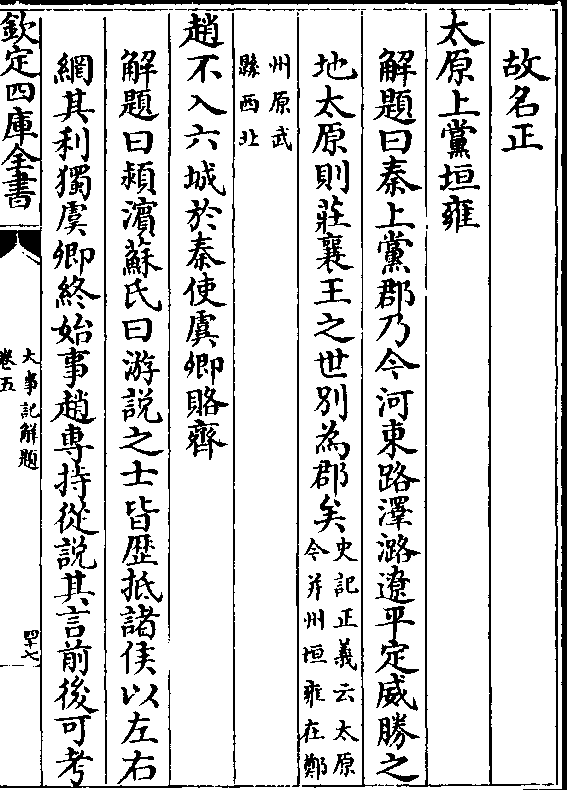 故名正
太原上黨垣雍
解題曰秦上黨郡乃今河東路澤潞遼平定威勝之
地太原則莊襄王之世別為郡矣史記正義云太原
今并州垣雍在鄭
州原武
縣西北
趙不入六城於秦使虞卿賂齊
解題曰潁濵蘇氏曰游說之士皆歴抵諸侯以左右
網其利獨虞卿終始事趙專持從說其言前後可考
欽定四庫全書
大事記解題
卷五
四十七